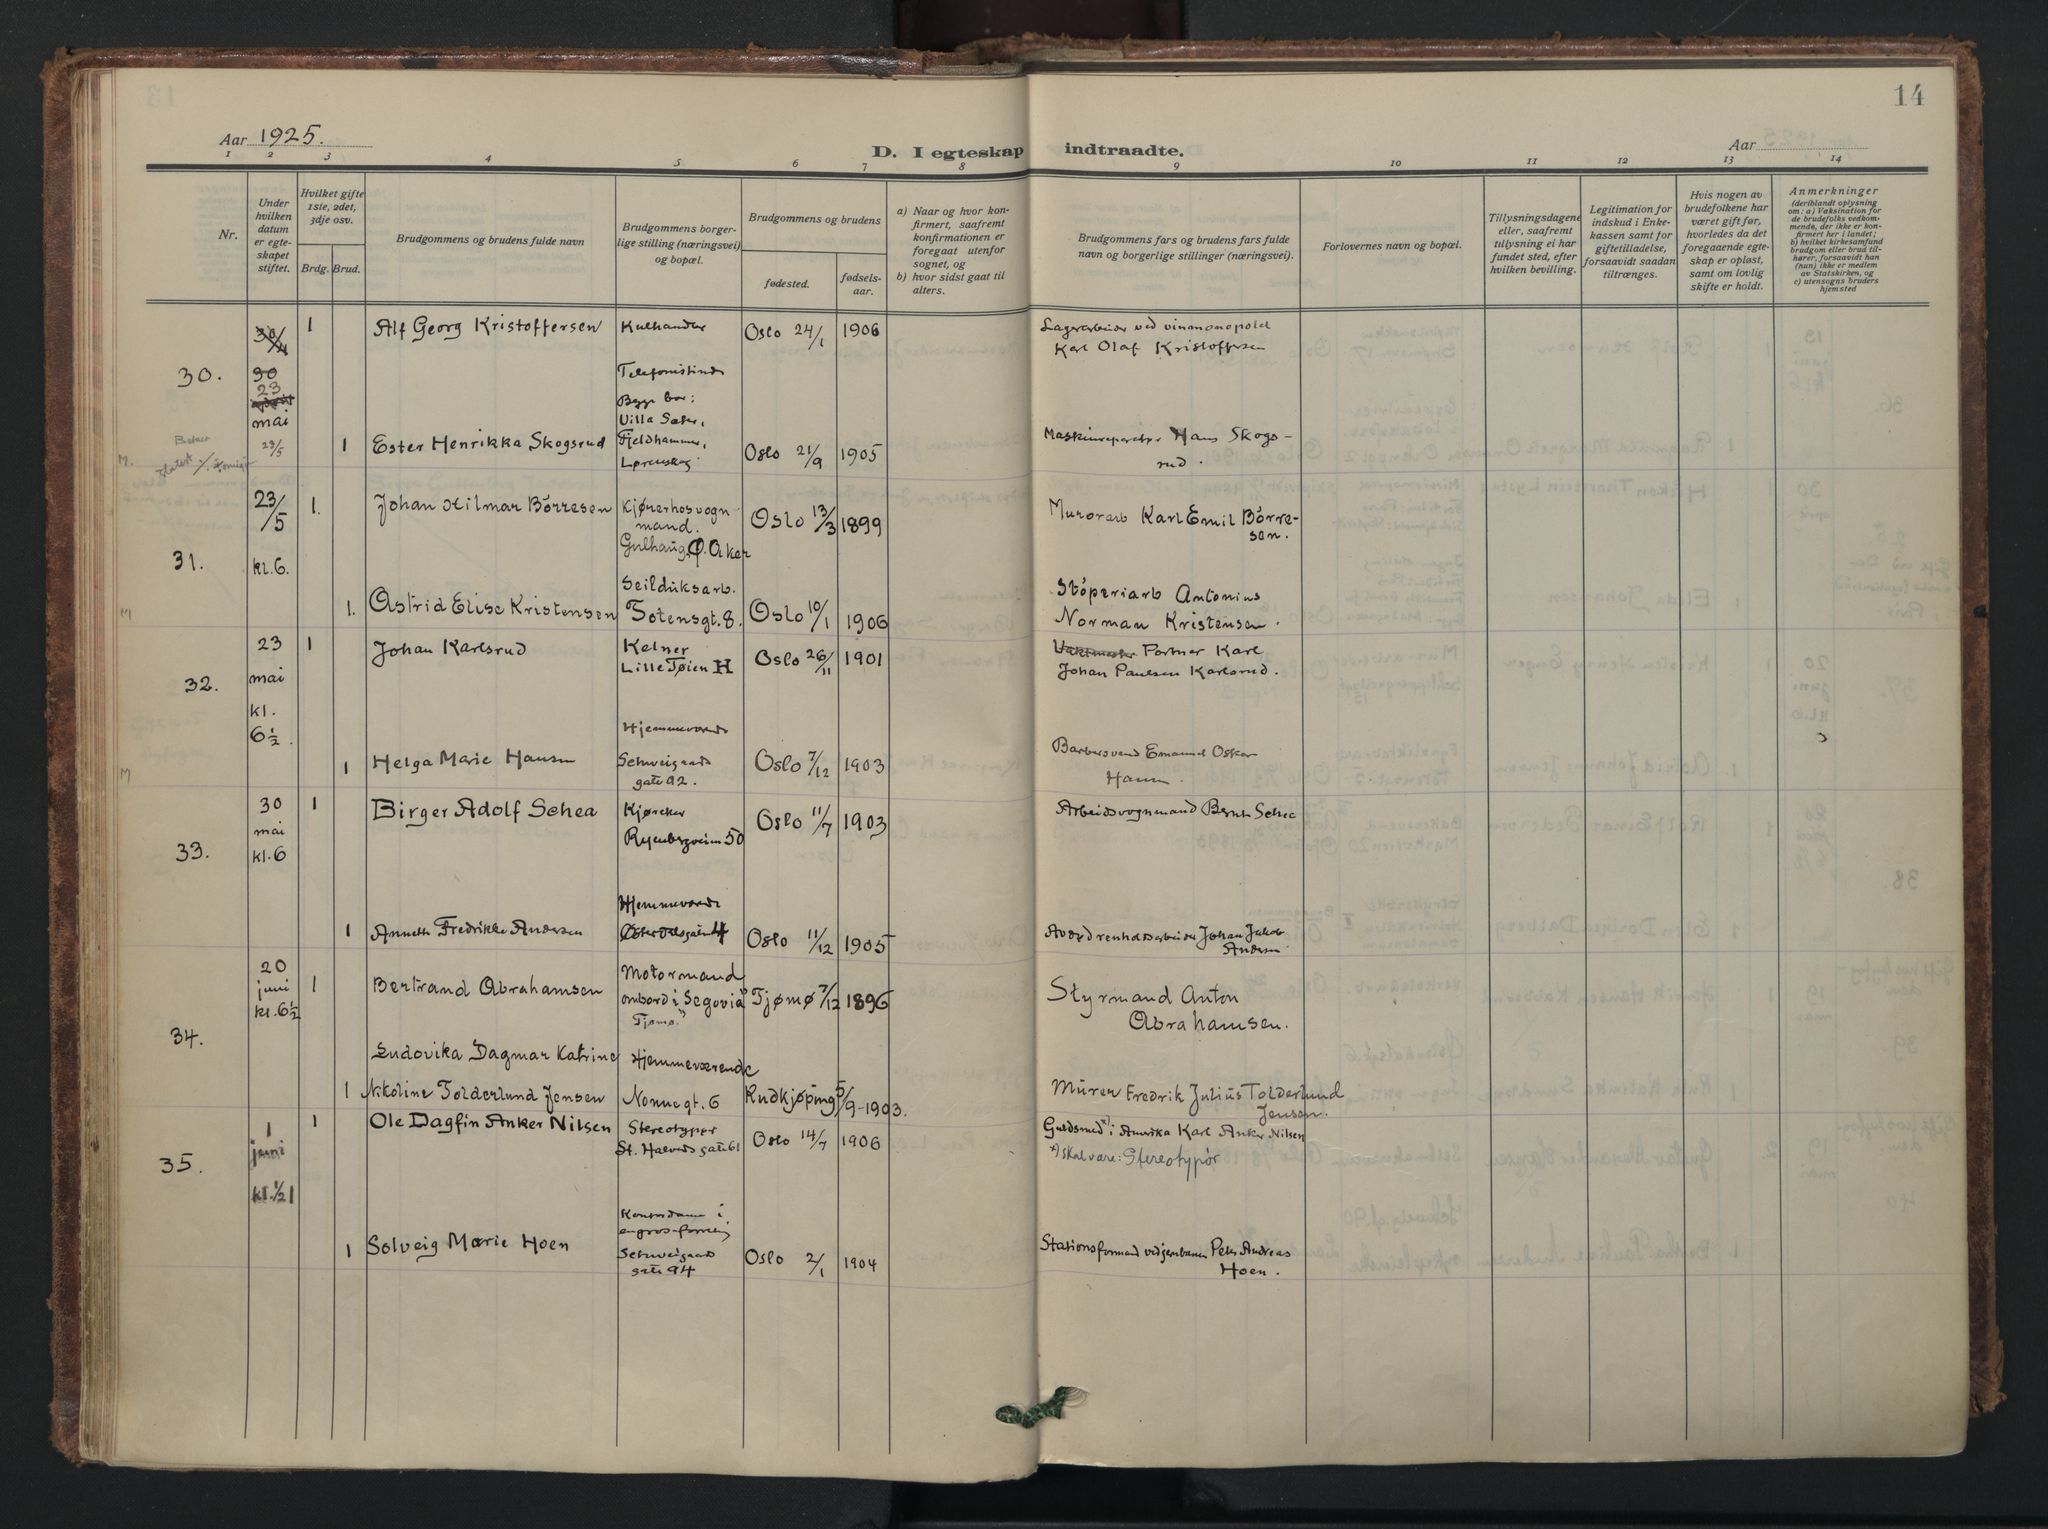 14
Aar 1925.
D. I egteskap indtraadte.
Aar
1 2 3 4 5 6 7 8 9 10 11 12 13 14
Nr.
Under
hvilken
datum
er egte-
skapet
stiftet.
Hvilket gifte
1ste, 2det,
3dje osv.
Brdg. Brud.
Brudgommens og brudens fulde navn
Brudgommens borger-
lige stilling (næringsvei)
og bopæl.
Brudgommens og brudens
fødested.
fødsels-
aar.
a) Naar og hvor kon-
firmert, saafremt
konfirmationen er
foregaat utenfor
sognet, og
b) hvor sidst gaat til
alters.
Brudgommens fars og brudens fars fulde
navn og borgerlige stillinger (næringsvei).
Forlovernes navn og bopæl.
Tillysningsdagene
eller, saafremt
tillysning ei har
fundet sted, efter
hvilken bevilling.
Legitimation for
indskud i Enke-
kassen samt for
giftetilladelse,
forsaavidt saadan
tiltrænges.
Hvis nogen av
brudefolkene har
været gift før,
hvorledes da det
foregaaende egte-
skap er opløst,
samt om lovlig
skifte er holdt.
Anmerkninger
(deriblandt oplysning
om: a) Vaksination for
de brudefolks vedkom-
mende, der ikke er kon-
firmert her i landet;
b) hvilket kirkesamfund
brudgom eller brud til-
hører, forsaavidt han
(hun) ikke er medlem
av Statskirken, og
c) utensogns bruders
hjemsted
30.
30/4
30
23
mai
23/5
1 Alf Georg Kristoffersen
Kulhandler
Oslo 24/1 1906
Lagerarbeider ved vinmonopolet
Karl Olaf Kristoffersen
Telefonistinde
Begge bor:
Villa Sæter,
Fjeldhammer,
Lørenskog
M.
1 Ester Henrikka Skogsrud
Oslo 21/9 1905
Maskinreparatør Hans Skogs-
rud.
31.
23/5
kl. 6.
1. Johan Hilmar Börresen
Kjørerhosvogn
mand.
Gulhaug, Ø. Aker
Oslo 13/3 1899
Murerarb Karl Emil Börre-
sen.
M
1. Astrid Elise Kristensen
Seilduksarb.
Totensgt. 8.
Oslo 10/1 1906
Stóperiarb Antonius
Norman Kristensen.
32.
23
mai
kl.
6½.
1 Johan Karlsrud
Kelner
Lille Tøien H
Oslo 26/11 1901
Vaktmester Portner Karl
Johan Paulsen Karlsrud.
M
1 Helga Marie Hansen
Hjemmeværende
Schweigaards
gate 92.
Oslo 7/12 1903
Barbersvend Emanuel Oskar
Hansen.
33.
30
mai
kl. 6
1 Birger Adolf Schea
Kjørekar
Ryenbergveien 50
Oslo 11/7 1903
Arbeidsvognmand Bernt Schea
1 Annette Fredrikke Andersen
Hjemmeværende
Østerdalsgaten 4
Oslo 11/12 1905
Avd. renholdsarbeider Johan Jakob
Andersen
34.
20
juni
kl. 6½
1 Bertrand Abrahamsen
Motormand
ombord i "Segovia"
Tjømø.
Tjømø 7/12 1896
Styrmand Anton
Abrahamsen.
Ludovika Dagmar Katrine
1 Nikoline Tolderlund Jensen
Hjemmeværende
Nonnegt. 6
Rudkjøping 5/9-1903.
Mürer Fredrik Julius Tolderlund
Jensen.
35.
1
juni
kl. ½1
1 Ole Dagfin Anker Nilsen
Stereotypør
St. Halvards gate 61
Oslo 14/7 1906
Guldsmed x) i Amerika Karl Anker Nilsen
x) skal være: Stereotypör
1 Solveig Marie Hoen
Kontordame i
engros-forretning
Schweigaards
gate 94
Oslo 2/1 1904
Stationsformand ved jernbanen Peter Andreas
Hoen.